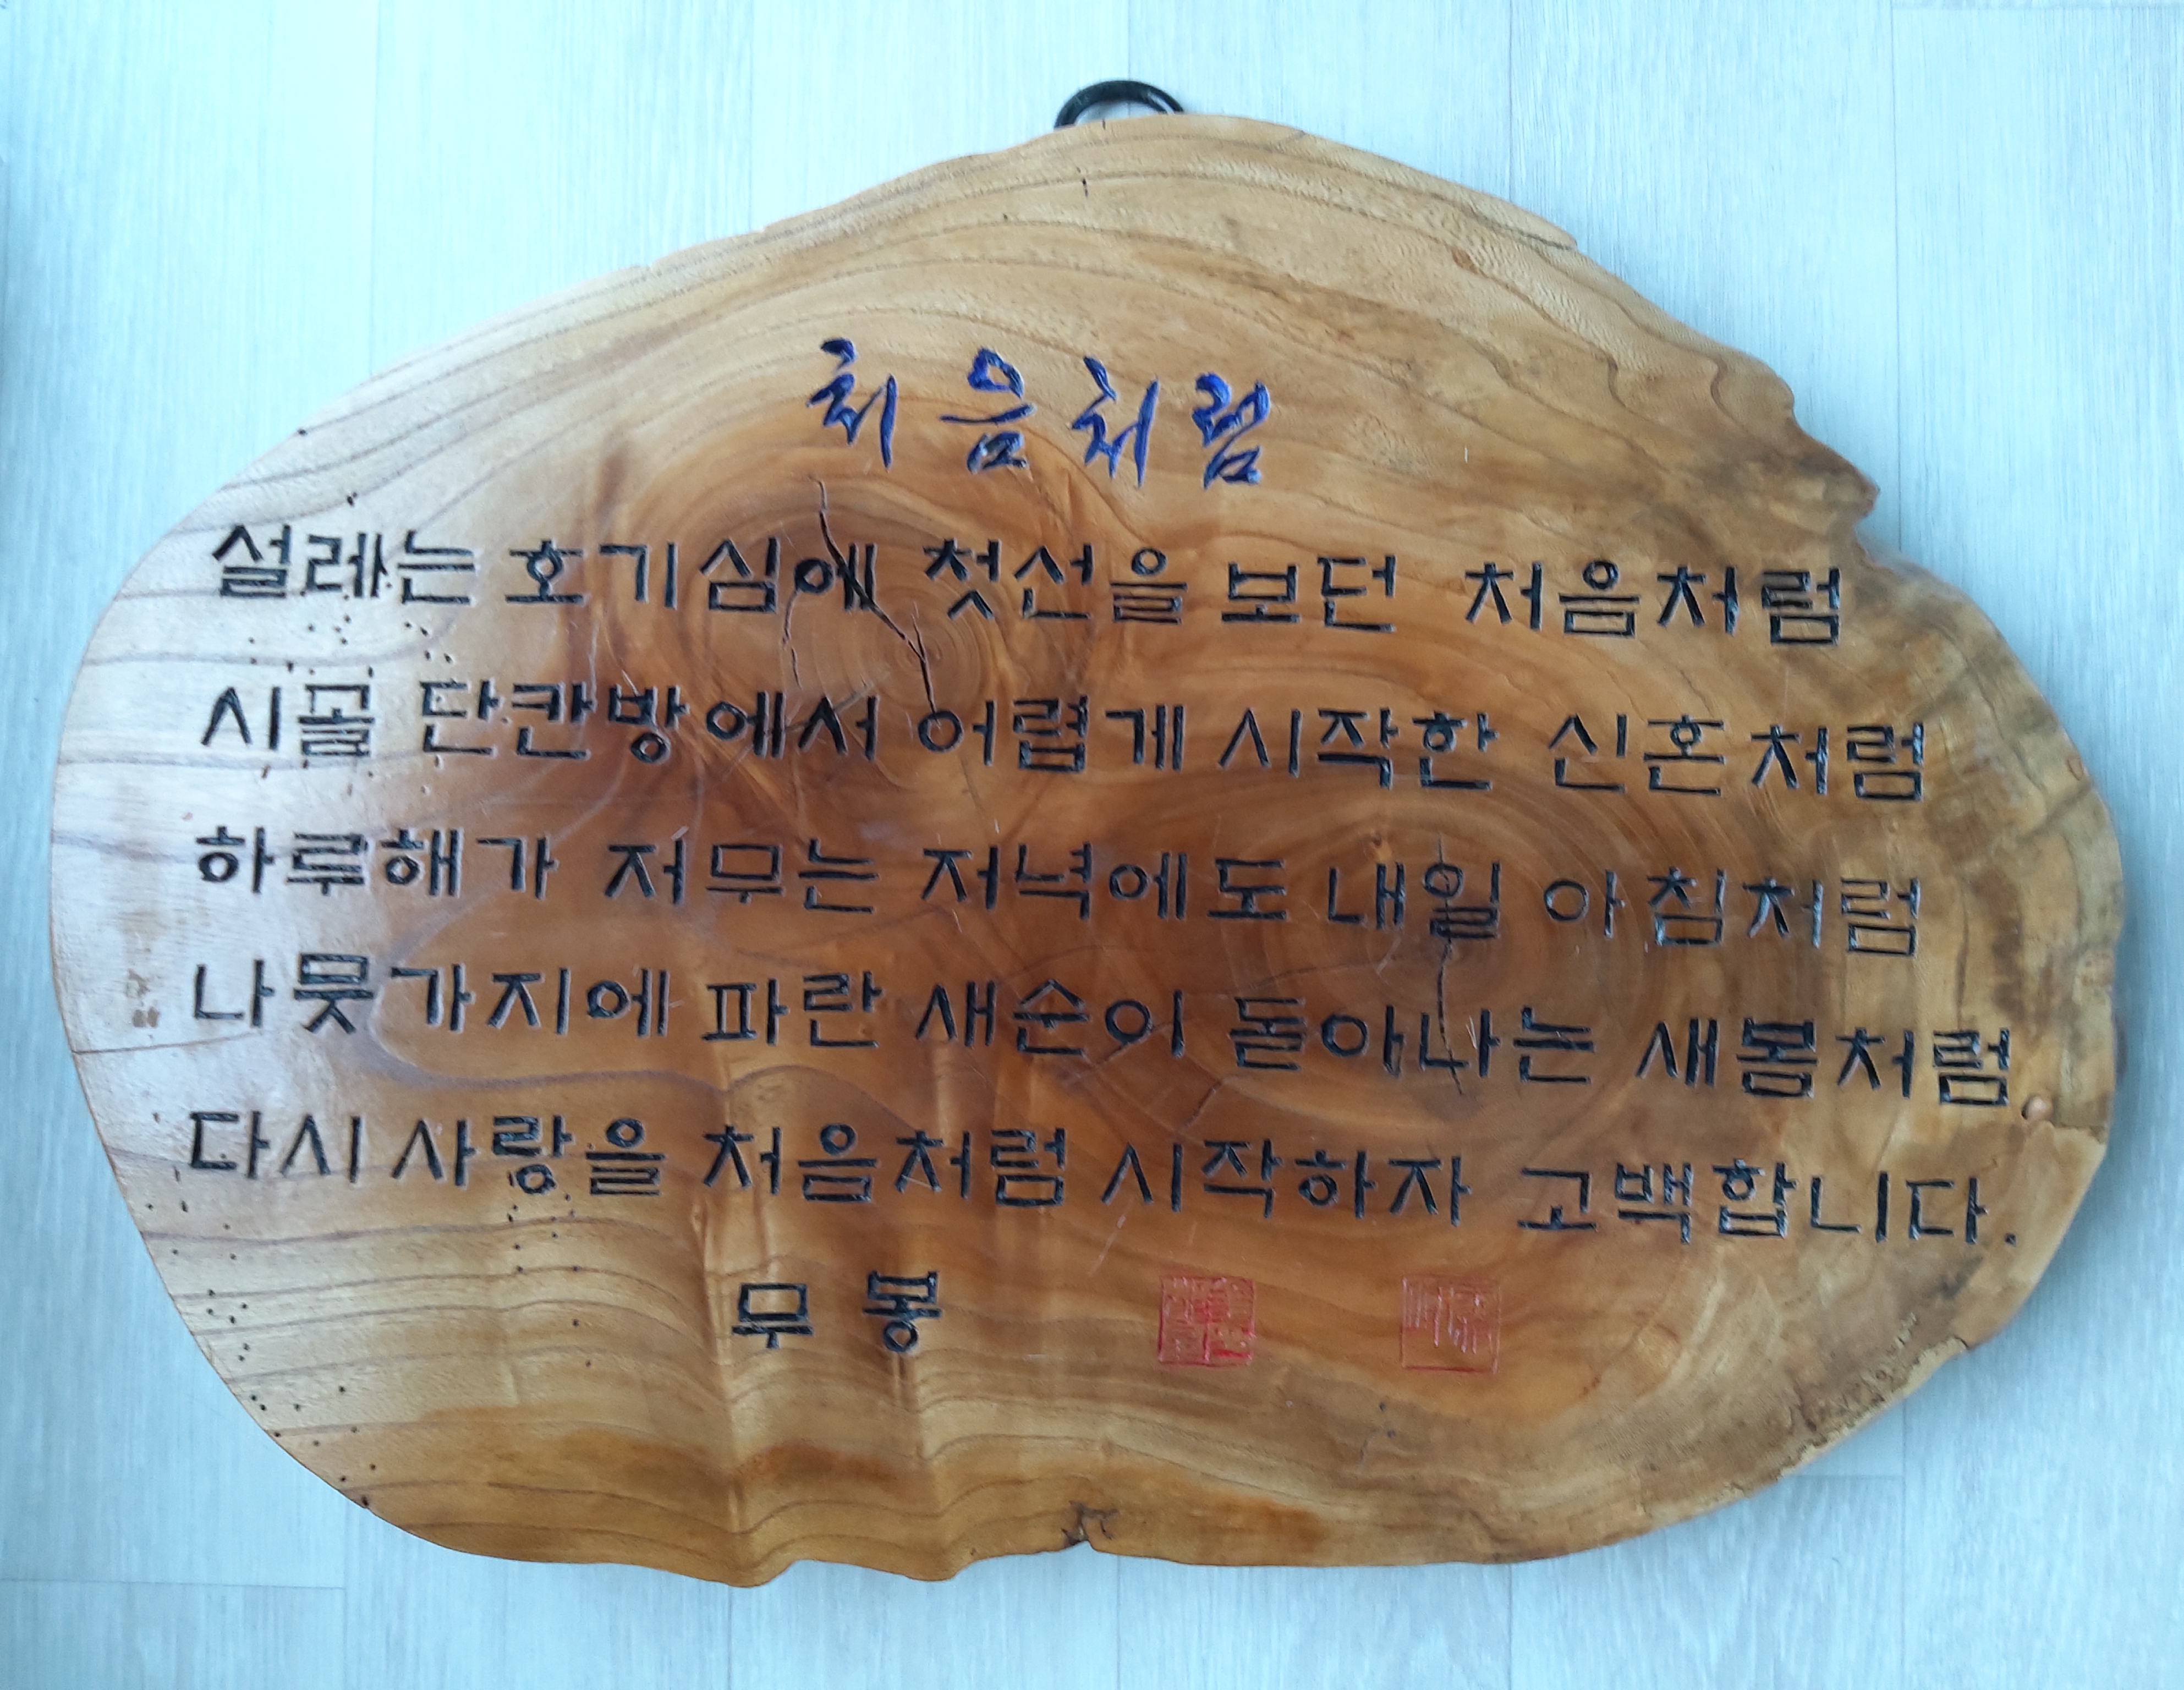 처음처럼
설레는 호기심에 첫선을 보던 처음처럼
시골 단칸방에서 어렵게 시작한 신혼처럼
하루해가 저무는 저녁에도 내일 아침처럼
나뭇가지에 파란 새순이 돋아나는 새봄처럼
다시 사랑을 처음처럼 시작하자 고백합니다.
무봉